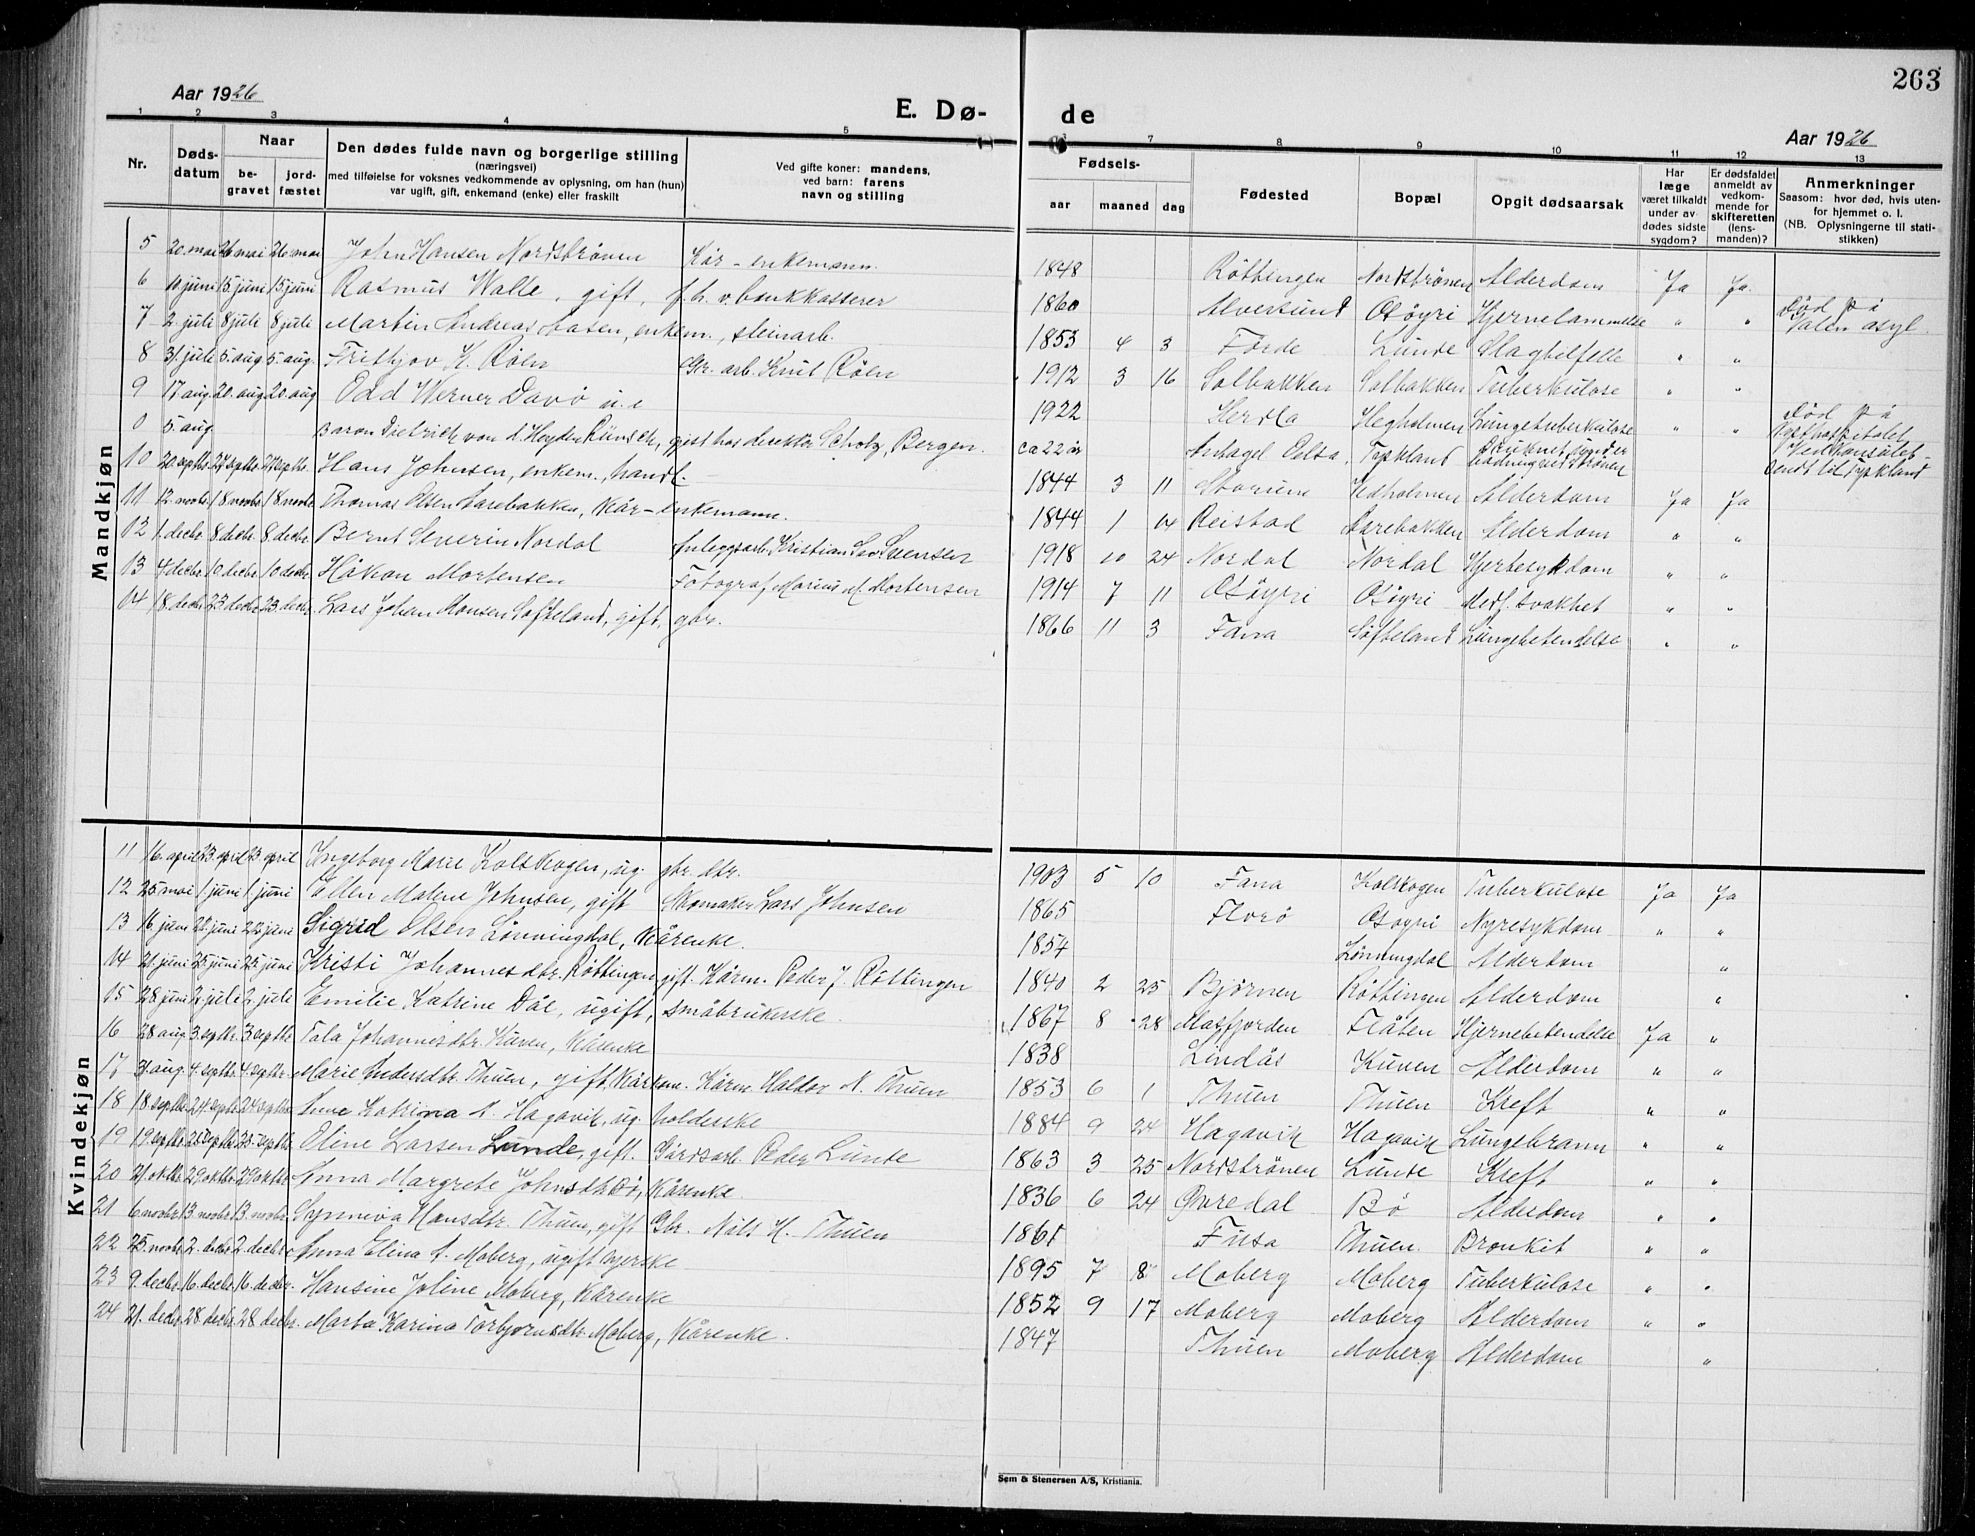 263
Aar 1926
E. Dø-
de
Aar 1926
1 2 3 4 5 6 7 8 9 10 11 12 13
Nr. Døds-datum Naar be-gravet jord-fæstet
Den dødes fulde navn og borgerlige stilling
(næringsvei)
med tilføielse for voksnes vedkommende av oplysning, om han (hun)
var ugift, gift, enkemand (enke) eller fraskilt
Ved gifte koner: mandens,
ved barn: farens
navn og stilling
Fødsels-
aar maaned dag
Fødested Bopæl Opgit dødsaarsak
Har læge været tilkaldt under av dødes sidste sygdom?
Er dødsfaldet anmeldt av vedkom-mende for skifteretten (lens-manden)?
Anmerkninger
Saasom: hvor død, hvis uten-
for hjemmet o. l.
(NB. Oplysningerne til stati-
stikken)
Mandkjøn
5 20. mai 26 mai 26. mai John Hansen Nordstrønen Kår-enkemann. 1848 Røttingen Nordstrønen Alderdom Ja Ja.
6 11 juni 15 juni 15 juni Rasmus Walle, gift, f.h.v. bankkasserer 1860 Alversund Osøyri Hjernelammelse " " Død på Valen asyl.
7 2. juli 8 juli 8 juli Martin Andreas Aasen, enkem., steinarb. 1853 4 3 Førde Lunde Slagtilfelle " "
8 31. juli 5. aug 5. aug. Frithjov K. Røen Gr. arb. Knut Røen 1912 3 16 Solbakken Solbakken Tuberkulose " "
9 17 aug. 20. aug 20. aug Odd Werner Davø u.e 1922 Herdla Hegholmen Lungetuberkulose " " Død på Kysthospitalet
0 5. aug Baron Dietrich von d. Heyden Rünsch, gjest hos direktør Schoby, Bergen. ca 22 år Tyskland Druknet under badning ved Strønen sendt til Tyskland
10 20 septbr 27 septbr 27 septbr. Hans Johnsen, enkem., handl. 1844 3 11 Storum Vedholmen Alderdom Ja Ja
11 12. novbr. 18 novbr 18 novbr Thomas Olsen Aarebakken, kår-enkemann. 1844 1 14 Reistad Aarebakken Alderdom " "
12 1. decbr. 8 decbr. 8 decbr. Bernt Severin Nordal Anleggsarb. Kristian Svensen 1918 10 24 Nordal Nordal Hjertesykdom " "
13 4 decbr. 10 decbr. 10 decbr. Håkon Mortensen Fotograf Marius M. Mortensen 1914 7 11 Osøyri Osøyri Medf. svakhet " "
14 18. decbr. 23 decbr. 23. decbr. Lars Johan Monsen Søfteland, gift, gbr. 1866 11 3 Fana Søfteland Lungebetendelse " "
Kvindekjøn
11 16. april 23. april 23 april Ingeborg Marie Kolskogen, ug. gbr. dtr. 1903 5 10 Fana Kolskogen Tuberkulose Ja Ja
12 25 mai 1 juni 1 juni Ellen Malene Johnsen, gift Skomaker Lars Johnsen 1865 Florø Osøyri Nyresykdom " "
13 16. juni 22 juni 22 juni Sigrid Olsen Lønningdal, kårenke. 1854 Lønningdal Alderdom "
14 21 juni 25 juni 25 juni Kristi Johannesdtr. Røttingen gift. Kårm. Peder J. Røttingen 1840 2 25 Bjørnen Røttingen Alderdom "
15 28 juni 2 juli 2. juli Emilie Katrine Dåe, ugift, småbrukerske. 1867 8 28 Masfjorden Flåten Hjernebetendelse Ja "
16 28 aug 3. septbr. 3 septbr Tala Johannesdtr. Kuven, Kårenke 1838 Lindås Kuven Alderdom " "
17 31 aug. 4 septbr. 4. septbr. Marie Andersdtr. Thuen, gift, kårkone. Kårm. Haldor N. Thuen 1853 6 1 Thuen Thuen Kreft " "
18 18 septbr. 24. septbr 24 septbr Anne Katrina A. Hagavik, ug. holderske 1884 9 24 Hagavik Hagavik Lungebrann " "
19 19. septbr. 25 septbr. 25. septbr. Oline Larsen Lunde, gift. Gårdsarb. Peder Lunde 1863 3 25 Nordstrønen Lunde Kreft " "
20 21. oktbr. 29 oktbr 29 oktbr Anna Margrete Johnsdtr. Bø, Kårenke. 1836 6 24 Øvredal Bø Alderdom " "
21 6 novbr 13. novbr 13. novbr. Synneva Hansdtr. Thuen, gift Gbr. Nils H. Thuen 1861 Fusa Thuen. Bronkit " "
22 25. novbr 2. decbr 2. decbr. Anna Elina A. Moberg, ugift syerske 1895 7 8 Moberg Moberg Tuberkulose " "
23 9. decbr. 16 decbr. 16. decbr. Hansine Joline Moberg, Kårenke 1852 9 17 Moberg Moberg Alderdom " "
24 21. decbr 28 decbr. 28 decbr. Marta Karina Torbjørnsdtr. Moberg, Kårenke. 1847 Thuen Moberg Alderdom "
Sem & Stenersen A/S, Kristiania.